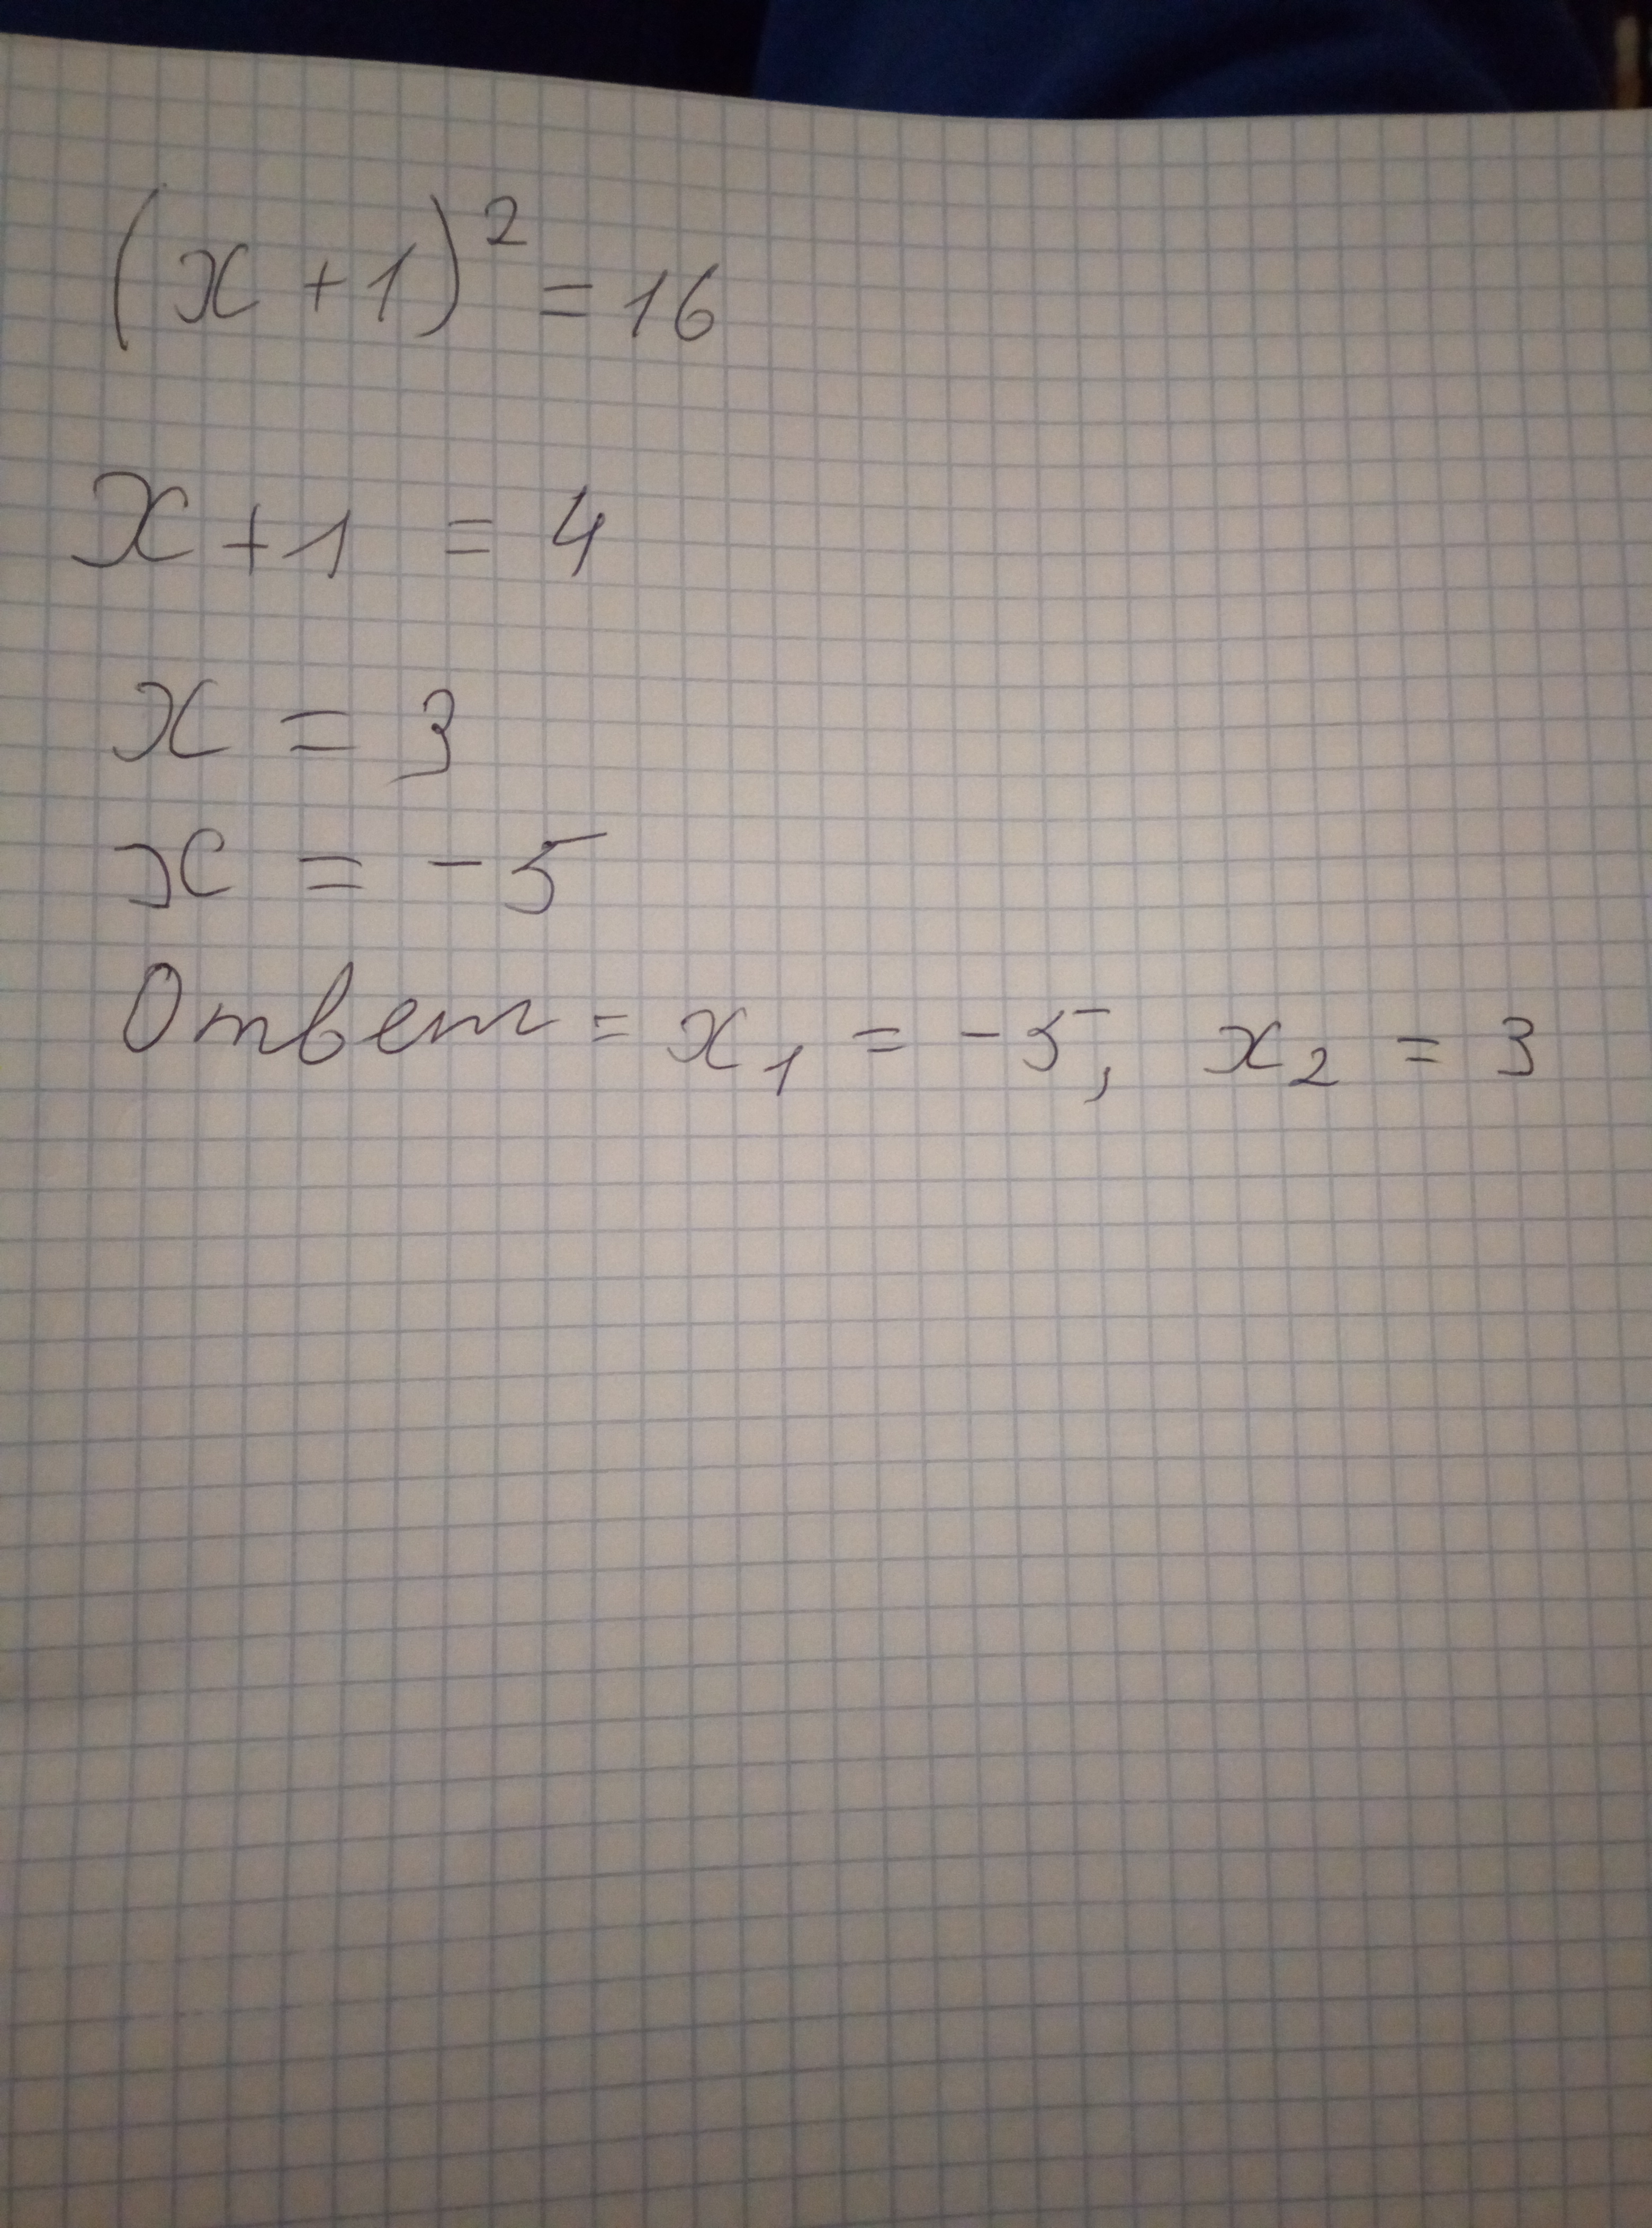 (x+1)² = 16
x+1 = 4
x = 3
x = -5
Ответ = x₁ = -5, x₂ = 3